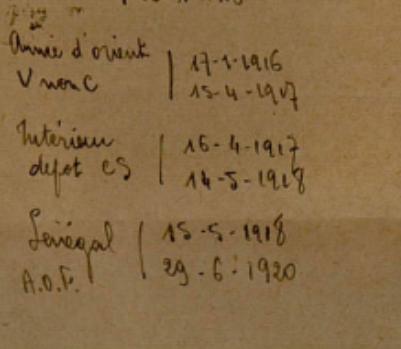 Armée d'orient | 17-1-1916
V non C | 15-4-1917
Intérieur | 16-4-1917
dépot CS | 14-5-1918
Sénégal | 15-5-1918
A.O.F. | 29-6-1920